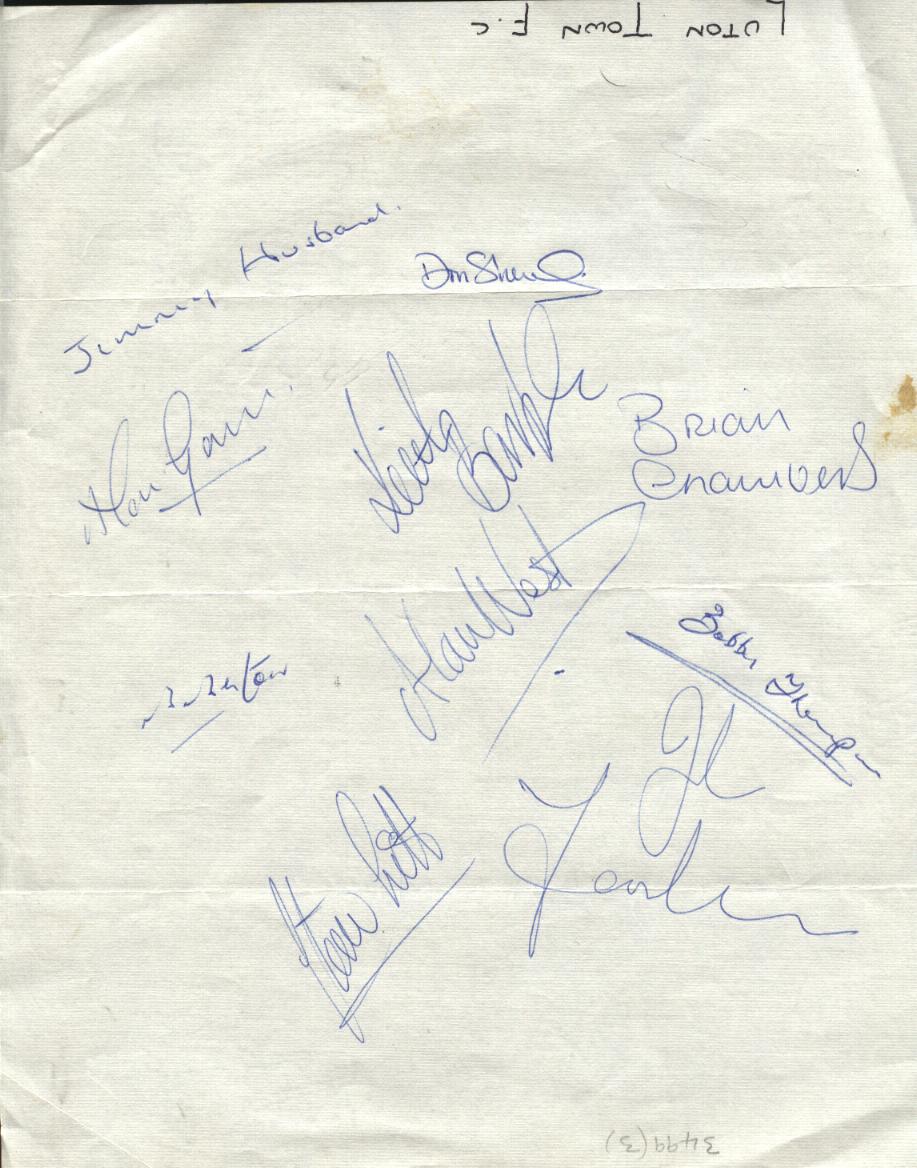 LUTON TOWN F.C
Jimmy Husband.
Don Shanks
Alan Garner.
Keith Barber
Brian
Chambers
Alan West
Bobby Thompson
3499(3)